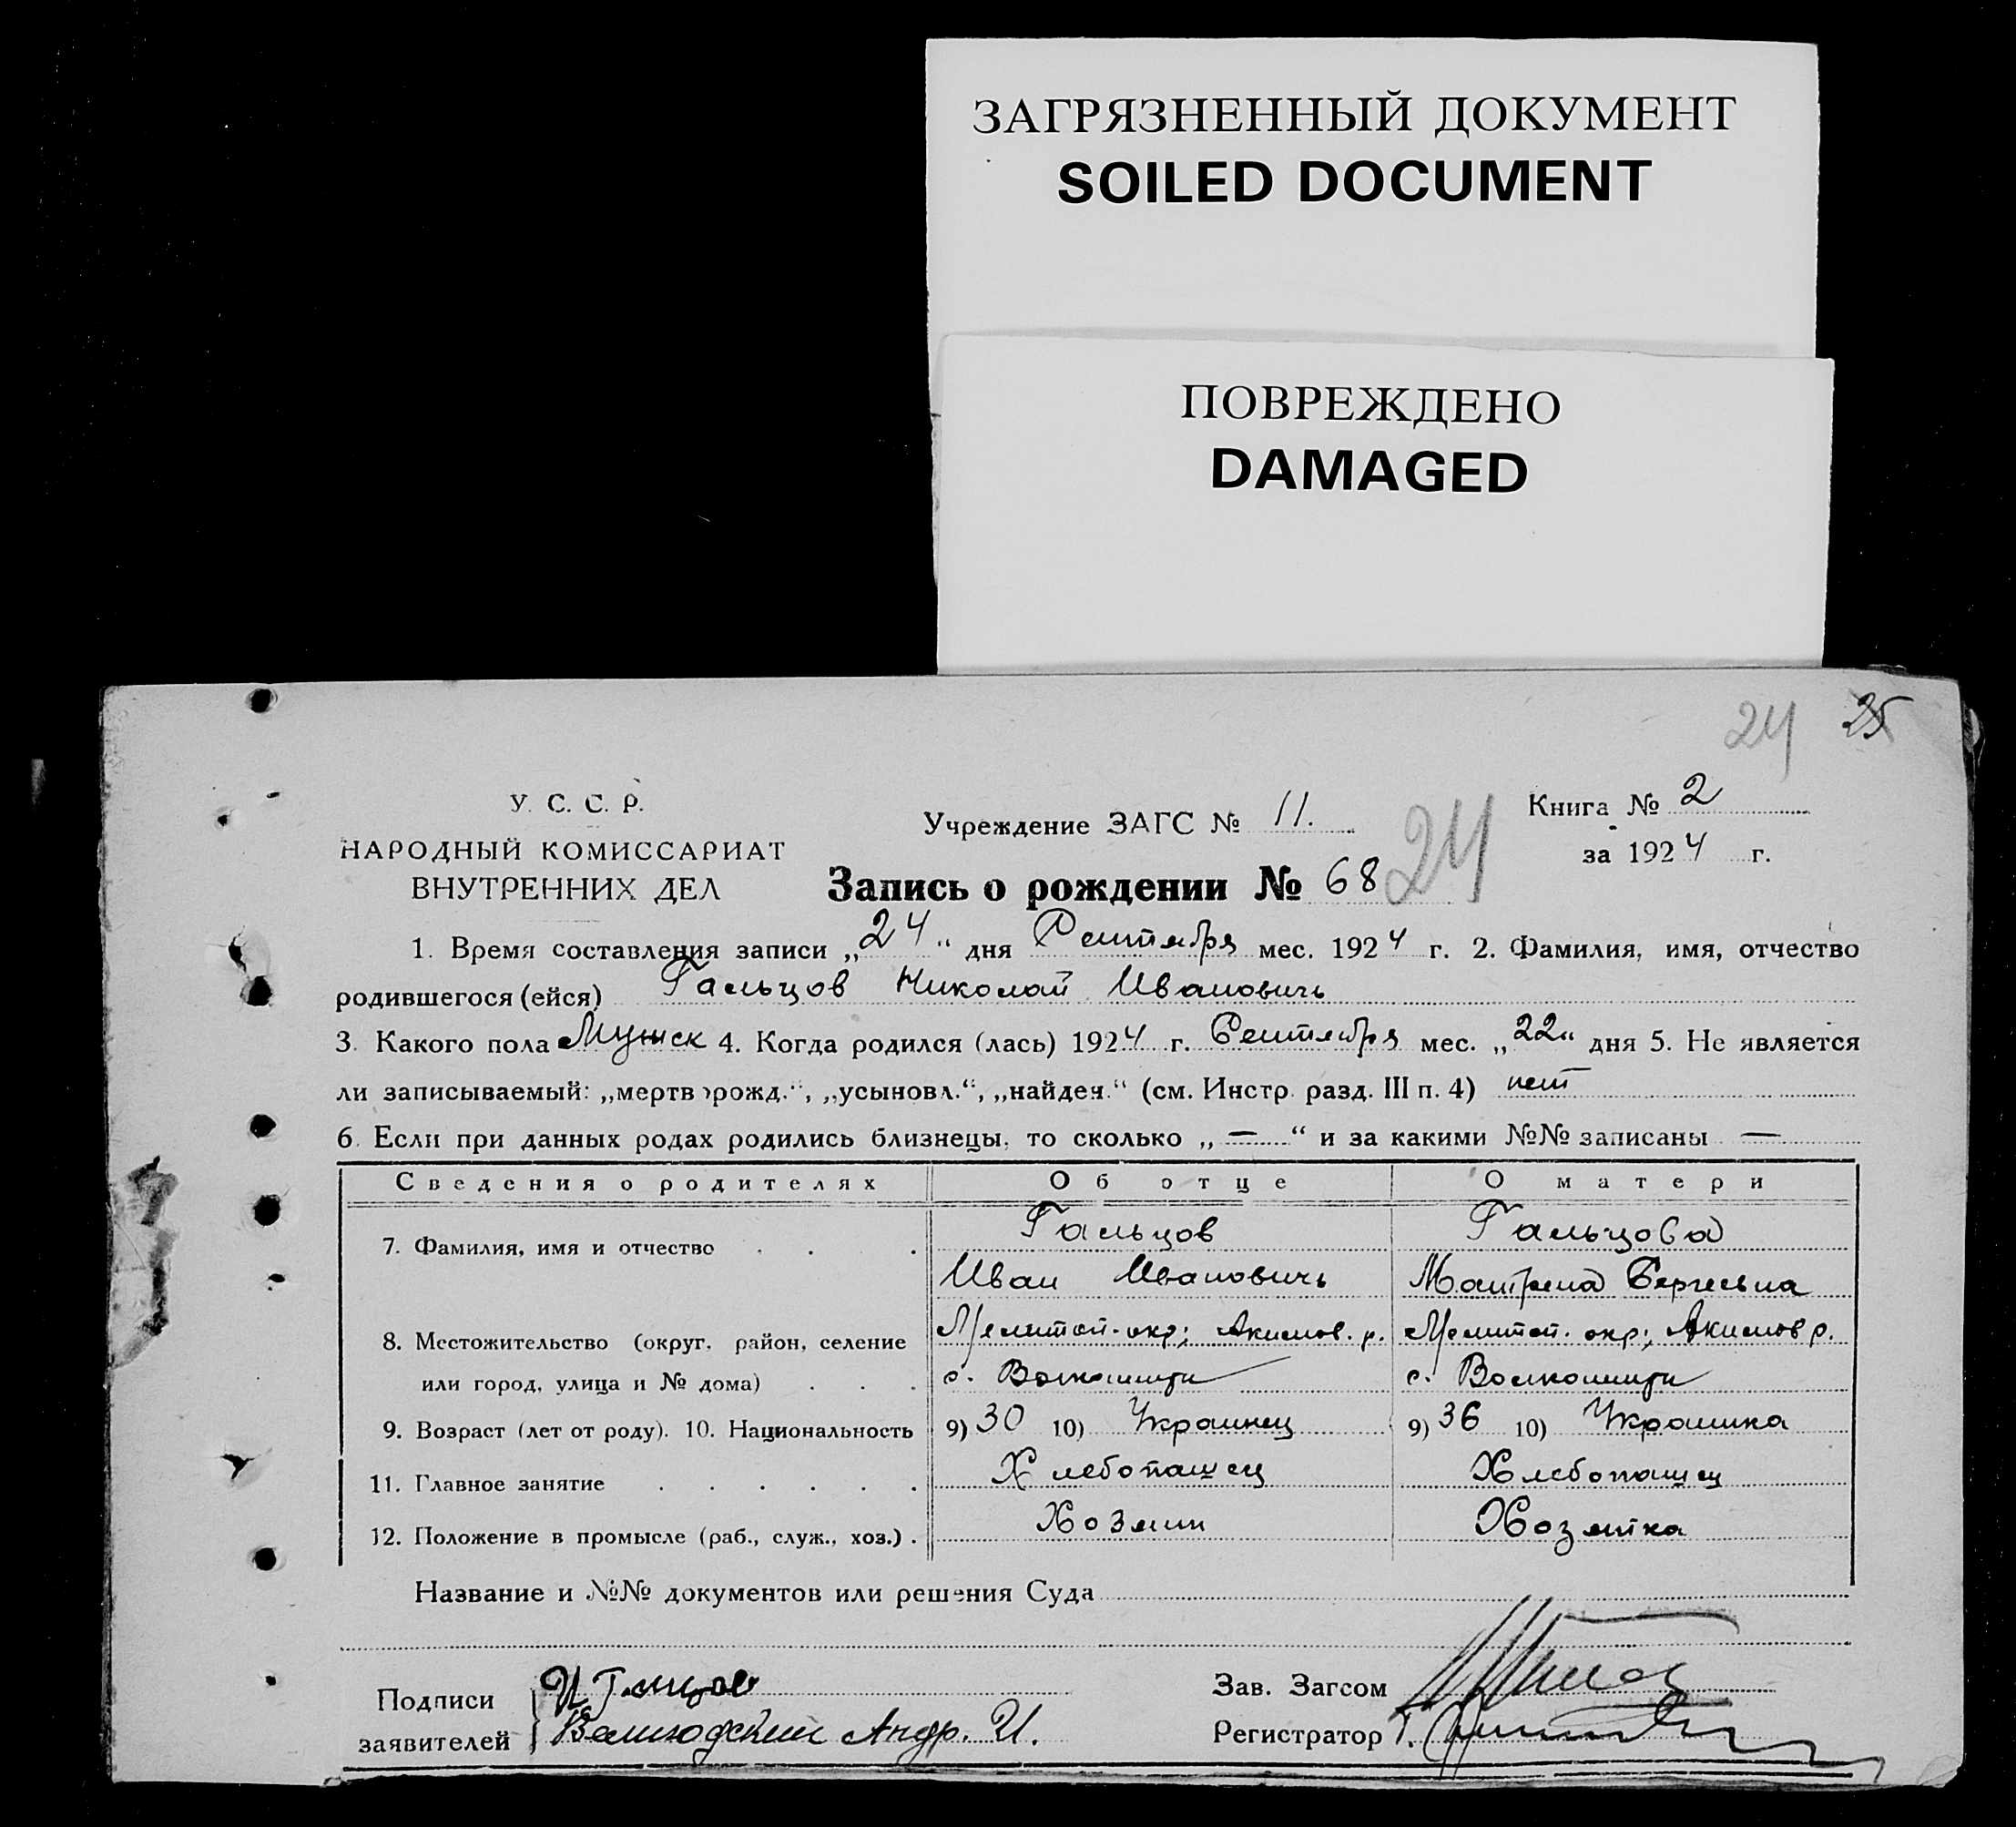 ЗАГРЯЗНЕННЫЙ ДОКУМЕНТ
SOILED DOCUMENT
ПОВРЕЖДЕНО
DAMAGED
24 25
У. С. С. Р.
НАРОДНЫЙ КОМИССАРИАТ
ВНУТРЕННИХ ДЕЛ
Учреждение ЗАГС № 11.
Книга № 2
за 1924 г.
Запись о рождении № 68 24
1. Время составления записи „24“ дня Сентября мес. 1924 г. 2. Фамилия, имя, отчество
родившегося (ейся) Гальцов Николай Ивановичь
3. Какого пола Мужск 4. Когда родился (лась) 1924 г. Сентября мес. „22“ дня 5. Не является
ли записываемый: „мертворожд.“, „усыновл.“, „найден.“ (см. Инстр. разд. III п. 4) нет
6. Если при данных родах родились близнецы, то сколько „—“ и за какими №№ записаны —
Сведения о родителях Об отце О матери
7. Фамилия, имя и отчество Гальцов Гальцова
Иван Ивановичь Матрена Сергеевна
8. Местожительство (округ, район, селение Мелитоп. окр; Акимов. р. Мелитоп. окр; Акимов р.
или город, улица и № дома) с. Волкошици с. Волкошици
9. Возраст (лет от роду). 10. Национальность 9) 30 10) Украинец 9) 36 10) Украинка
11. Главное занятие Хлебопашец Хлебопашец
12. Положение в промысле (раб., служ., хоз.) Хозяин Хозяйка
Название и №№ документов или решения Суда
Подписи заявителей И Гальцов
Андр. И.
Зав. Загсом
Регистратор Г.